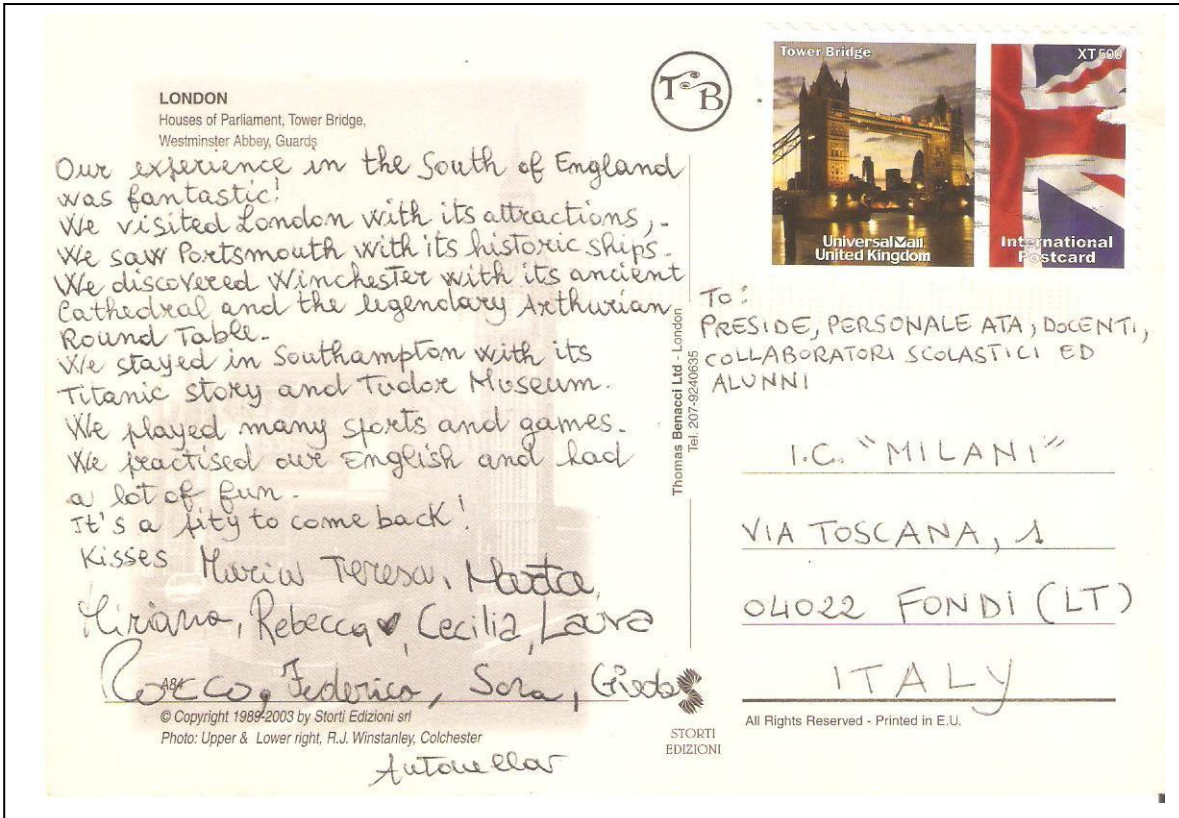 LONDON
Houses of Parliament, Tower Bridge,
Westminster Abbey, Guards
Our experience in the South of England
was fantastic!
We visited London with its attractions,-
We saw Portsmouth with its historic ships-
We discovered Winchester with its ancient
Cathedral and the legendary Arthurian
Round Table-
We stayed in Southampton with its
Titanic story and Tudor Museum.
We played many sports and games-
We practised our English and had
a lot of fun-
It's a pity to come back!
Kisses Maria Teresa, Marta,
Miriana, Rebecca♥, Cecilia, Laura
Rocco, Federica, Sara, Giada
A84
© Copyright 1989-2003 by Storti Edizioni srl
Photo: Upper & Lower right, R.J. Winstanley, Colchester
Antonella
TB
Thomas Benacci Ltd - London
Tel. 207-9240635
STORTI
EDIZIONI
Tower Bridge
XT500
UniversalMail
United Kingdom
International
Postcard
To:
PRESIDE, PERSONALE ATA, DOCENTI,
COLLABORATORI SCOLASTICI ED
ALUNNI
I.C. "MILANI"
VIA TOSCANA, 1
04022 FONDI (LT)
ITALY
All Rights Reserved - Printed in E.U.